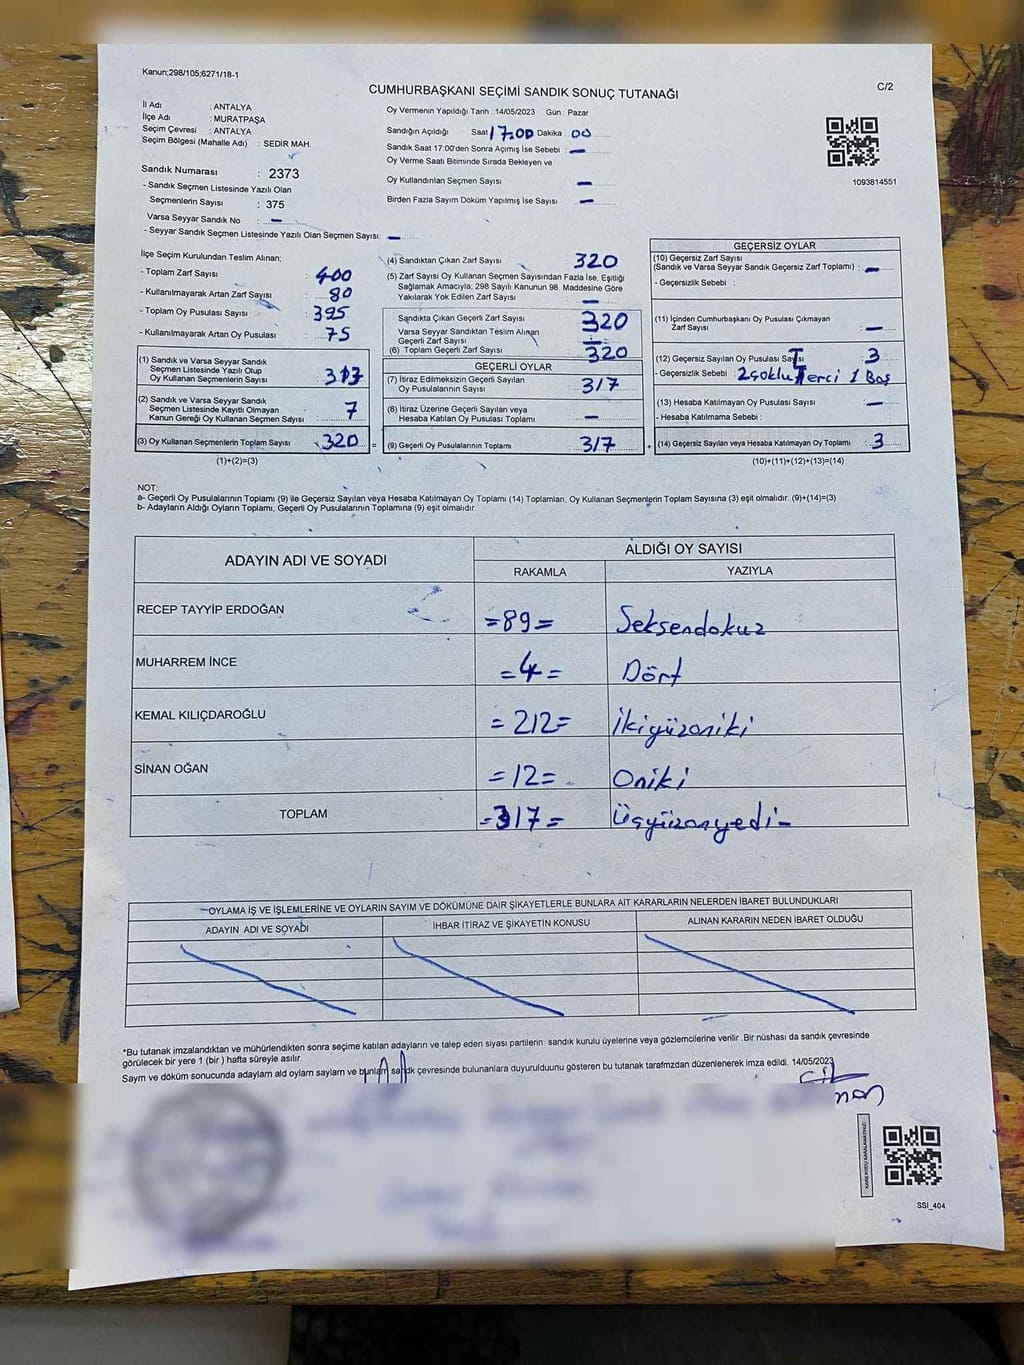 Kanun;298/105;6271/18-1
CUMHURBAŞKANI SEÇİMİ SANDIK SONUÇ TUTANAĞI
C/2
İl Adı : ANTALYA
İlçe Adı : MURATPAŞA
Seçim Çevresi : ANTALYA
Seçim Bölgesi (Mahalle Adı) : SEDİR MAH.
Oy Vermenin Yapıldığı Tarih :14/05/2023 Gün : Pazar
Sandığın Açıldığı Saat 17.00 Dakika 00
Sandık Saat 17:00'den Sonra Açımış İse Sebebi : —
Oy Verme Saati Bitiminde Sırada Bekleyen ve
Oy Kullandırılan Seçmen Sayısı —
Birden Fazla Sayım Döküm Yapılmış İse Sayısı : —
1093814551
Sandık Numarası : 2373
- Sandık Seçmen Listesinde Yazılı Olan
Seçmenlerin Sayısı : 375
Varsa Seyyar Sandık No : —
- Seyyar Sandık Seçmen Listesinde Yazılı Olan Seçmen Sayısı: —
İlçe Seçim Kurulundan Teslim Alınan;
- Toplam Zarf Sayısı : 400
- Kullanılmayarak Artan Zarf Sayısı : 80
- Toplam Oy Pusulası Sayısı : 395
- Kullanılmayarak Artan Oy Pusulası : 75
(1) Sandık ve Varsa Seyyar Sandık
Seçmen Listesinde Yazılı Olup
Oy Kullanan Seçmenlerin Sayısı : 313
(2) Sandık ve Varsa Seyyar Sandık
Seçmen Listesinde Kayıtlı Olmayan
Kanun Gereği Oy Kullanan Seçmen Sayısı : 7
(3) Oy Kullanan Seçmenlerin Toplam Sayısı : 320 =
(1)+(2)=(3)
(4) Sandıktan Çıkan Zarf Sayısı 320
(5) Zarf Sayısı Oy Kullanan Seçmen Sayısından Fazla İse, Eşitliği
Sağlamak Amacıyla; 298 Sayılı Kanunun 98. Maddesine Göre
Yakılarak Yok Edilen Zarf Sayısı —
Sandıkta Çıkan Geçerli Zarf Sayısı : 320
Varsa Seyyar Sandıktan Teslim Alınan
Geçerli Zarf Sayısı —
(6) Toplam Geçerli Zarf Sayısı : 320
GEÇERLİ OYLAR
(7) İtiraz Edilmeksizin Geçerli Sayılan
Oy Pusulalarının Sayısı : 317
(8) İtiraz Üzerine Geçerli Sayılan veya
Hesaba Katılan Oy Pusulası Toplamı : —
(9) Geçerli Oy Pusulalarının Toplamı : 317 +
GEÇERSİZ OYLAR
(10) Geçersiz Zarf Sayısı
(Sandık ve Varsa Seyyar Sandık Geçersiz Zarf Toplamı) : —
- Geçersizlik Sebebi :
(11) İçinden Cumhurbaşkanı Oy Pusulası Çıkmayan
Zarf Sayısı : —
(12) Geçersiz Sayılan Oy Pusulası Sayısı : 3
- Geçersizlik Sebebi : 2 çoklu Terci 1 Boş
(13) Hesaba Katılmayan Oy Pusulası Sayısı : —
- Hesaba Katılmama Sebebi :
(14) Geçersiz Sayılan veya Hesaba Katılmayan Oy Toplamı : 3
(10)+(11)+(12)+(13)=(14)
NOT:
a- Geçerli Oy Pusulalarının Toplamı (9) ile Geçersiz Sayılan veya Hesaba Katılmayan Oy Toplamı (14) Toplamları, Oy Kullanan Seçmenlerin Toplam Sayısına (3) eşit olmalıdır. (9)+(14)=(3)
b- Adayların Aldığı Oyların Toplamı, Geçerli Oy Pusulalarının Toplamına (9) eşit olmalıdır.
ADAYIN ADI VE SOYADI
ALDIĞI OY SAYISI
RAKAMLA YAZIYLA
RECEP TAYYİP ERDOĞAN =89= Seksendokuz
MUHARREM İNCE =4= Dört
KEMAL KILIÇDAROĞLU =212= İkiyüzoniki
SİNAN OĞAN =12= Oniki
TOPLAM =317= Üçyüzonyedi-
OYLAMA İŞ VE İŞLEMLERİNE VE OYLARIN SAYIM VE DÖKÜMÜNE DAİR ŞİKAYETLERLE BUNLARA AİT KARARLARIN NELERDEN İBARET BULUNDUKLARI
ADAYIN ADI VE SOYADI İHBAR İTİRAZ VE ŞİKAYETİN KONUSU ALINAN KARARIN NEDEN İBARET OLDUĞU
*Bu tutanak imzalandıktan ve mühürlendikten sonra seçime katılan adayların ve talep eden siyasi partilerin sandık kurulu üyelerine veya gözlemcilerine verilir .Bir nüshası da sandık çevresinde
görülecek bir yere 1 (bir ) hafta süreyle asılır.
Sayım ve döküm sonucunda adayların ald oyların sayların ve bunların sandk çevresinde bulunanlara duyurulduunu gösteren bu tutanak tarafmzdan düzenlenerek imza edildi. 14/05/2023
SSI_404